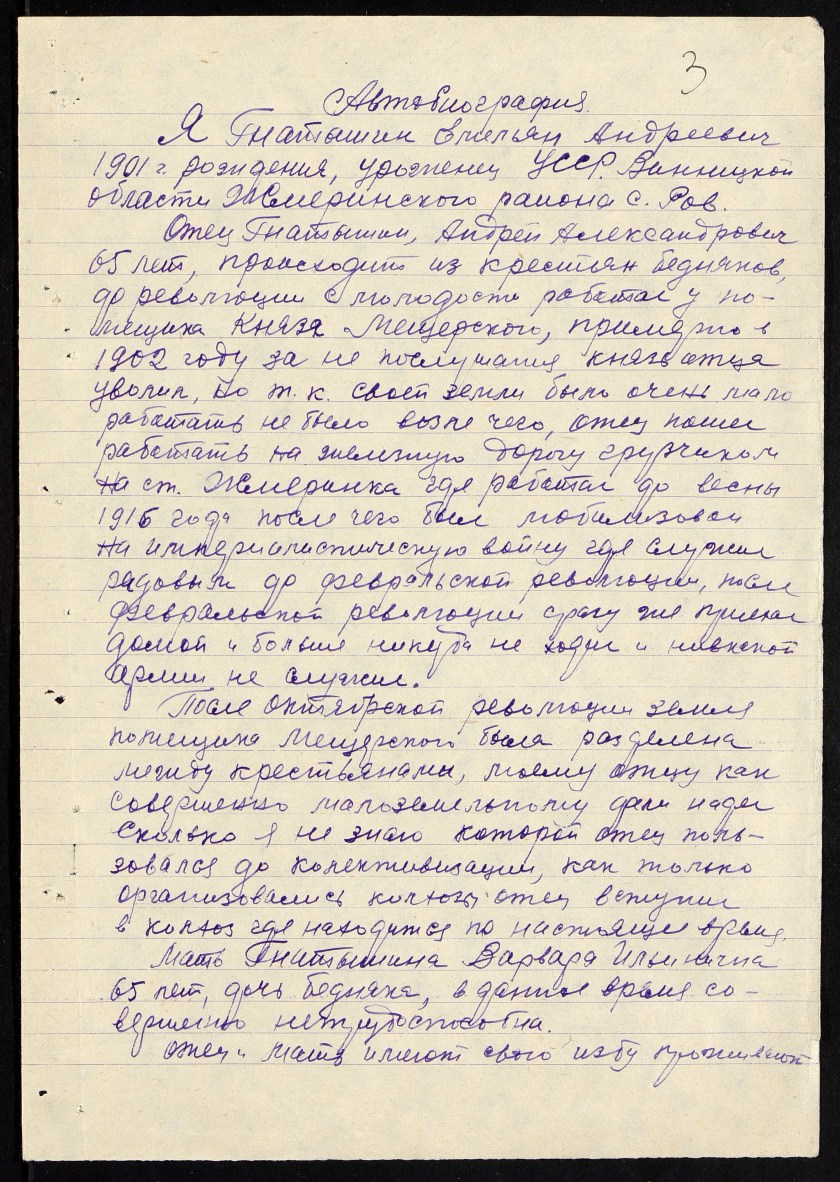 3
Автобиография.
Я Гнатышин Емельян Андреевич
1901 г. рождения, уроженец УССР. Винницкой
области Жмеринского района с. Ров.
Отец Гнатышин, Андрей Александрович
65 лет, происходит из крестьян бедняков,
до революции с молодости работал у по-
мещика Князя Мещерского, примерно в
1902 году за не послушания князь отца
уволил, но т.к. своей земли было очень мало
работать не было возле чего, отец пошел
работать на железную дорогу грузчиком
на ст. Жмеринка где работал до весны
1915 года после чего был мобилизован
на империалистическую войну где служил
рядовым до февральской революции, после
февральской революции сразу же приехал
домой и больше никуда не ходил и никакой
армии не служил.
После Октябрской революции земля
помещика Мещерского была разделена
между крестьянами, моему отцу как
совершенно малоземельному дали надел
сколько я не знаю которой отец поль-
зовался до колективизации, как только
организовались колхозы отец вступил
в колхоз где находится по настоящее время.
Мать Гнатышина Варвара Ильинична
65 лет, дочь бедняка, в данное время со-
вершенно нетрудоспособна.
Отец и мать имеют свою избу проживают